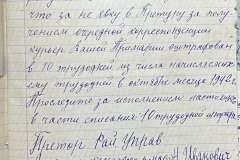 что за не явку в Претуру за полу-
чением очередной корреспонденции
курьер Вашей Примарии оштрафован
в 10 трудодней из числа начисленных
ему трудодней в октябре месяце 1942 г.
Проследите за исполнением настоящего
в части списания 10 трудодней штрафа.
Претор Рай Управ
Иванович